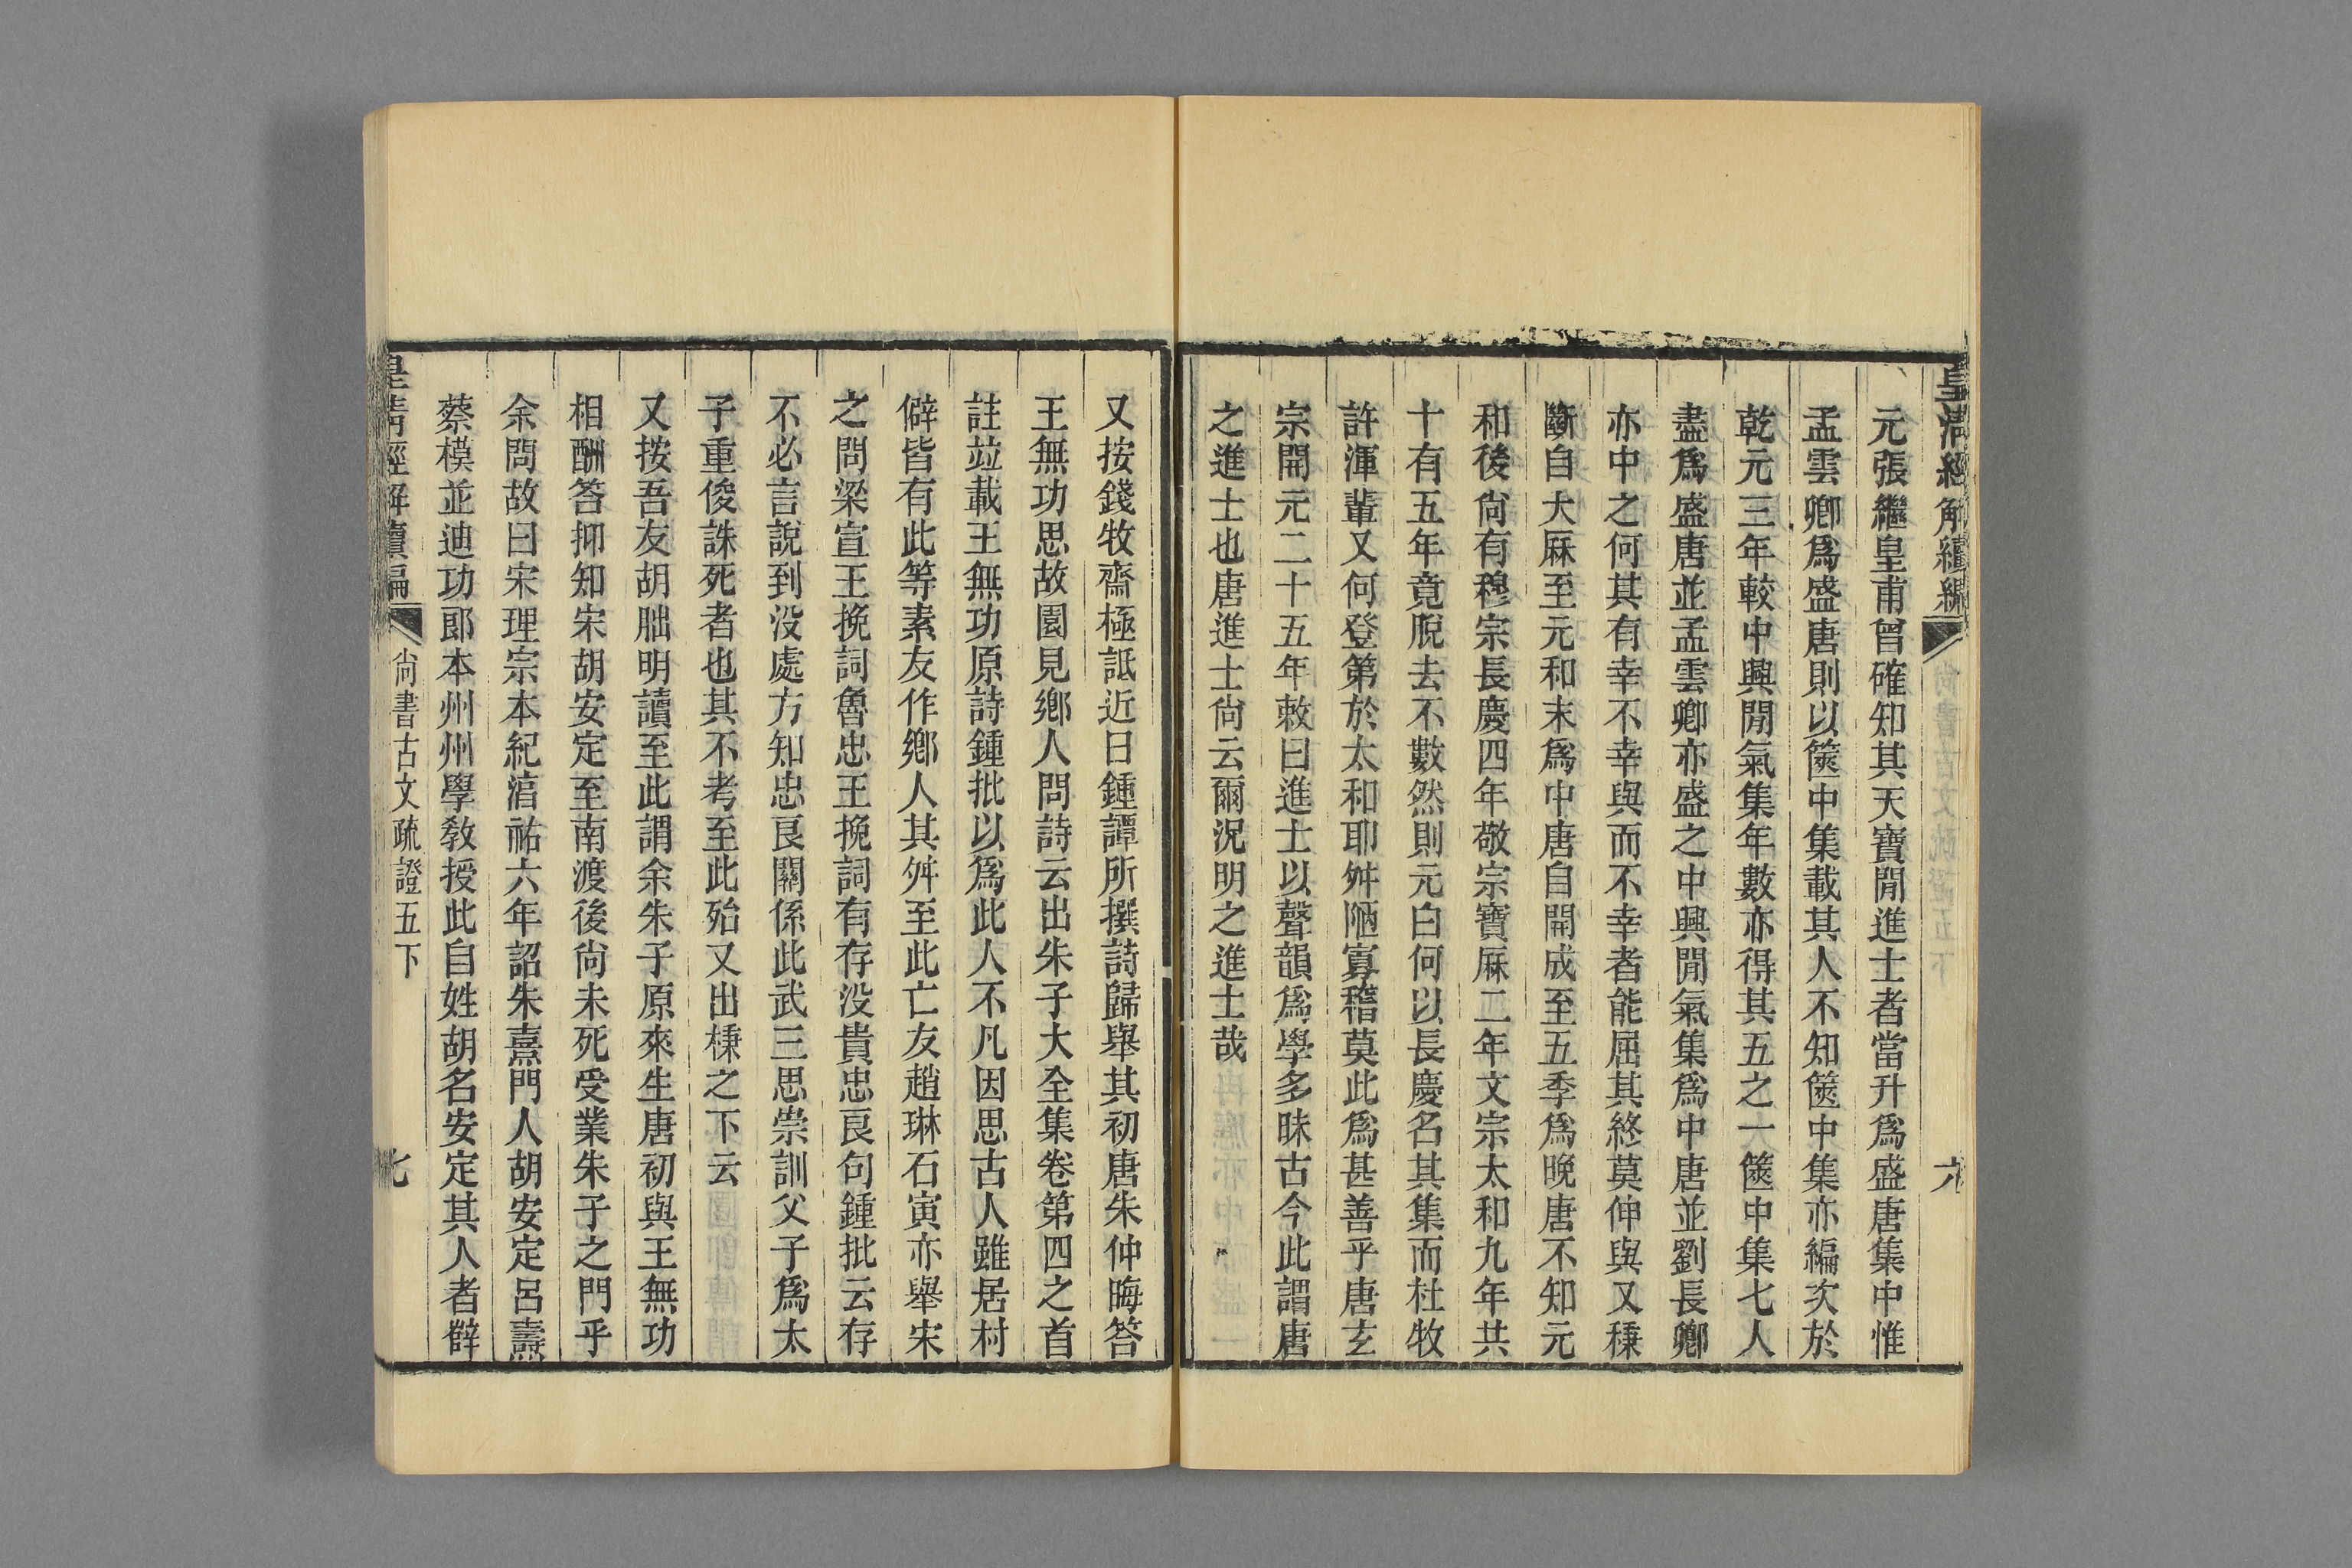 皇清經解續編
六
元張繼皇甫曾確知其天寶閒進士者當升爲盛唐集中惟
孟雲卿爲盛唐則以篋中集載其人不知篋中集亦編次於
乾元三年較中興閒氣集年數亦得其五之一篋中集七人
盡爲盛唐並孟雲卿亦盛之中興閒氣集爲中唐並劉長卿
亦中之何其有幸不幸與而不幸者能屈其終莫伸與又稾
斷自大厤至元和末爲中唐自開成至五季爲晚唐不知元
和後尙有穆宗長慶四年敬宗寶厤二年文宗太和九年共
十有五年竟脫去不數然則元白何以長慶名其集而杜牧
許渾輩又何登第於太和耶舛陋寡稽莫此爲甚善乎唐玄
宗開元二十五年敕曰進士以聲韻爲學多昧古今此謂唐
之進士也唐進士尙云爾況明之進士哉
又按錢牧齋極詆近日鍾譚所撰詩歸舉其初唐朱仲晦答
王無功思故園見鄉人問詩云出朱子大全集卷第四之首
註竝載王無功原詩鍾批以爲此人不凡因思古人雖居村
僻皆有此等素友作鄉人其舛至此亡友趙琳石寅亦舉宋
之問梁宣王挽詞魯忠王挽詞有存没貴忠良句鍾批云存
不必言說到没處方知忠良關係此武三思崇訓父子爲太
子重俊誅死者也其不考至此殆又出稾之下云
又按吾友胡朏明讀至此謂余朱子原來生唐初與王無功
相酬答抑知宋胡安定至南渡後尙未死受業朱子之門乎
余問故曰宋理宗本紀湻祐六年詔朱熹門人胡安定呂燾
蔡模並迪功郎本州州學敎授此自姓胡名安定其人者辥
皇淸經解續編
尙書古文疏證五下
七